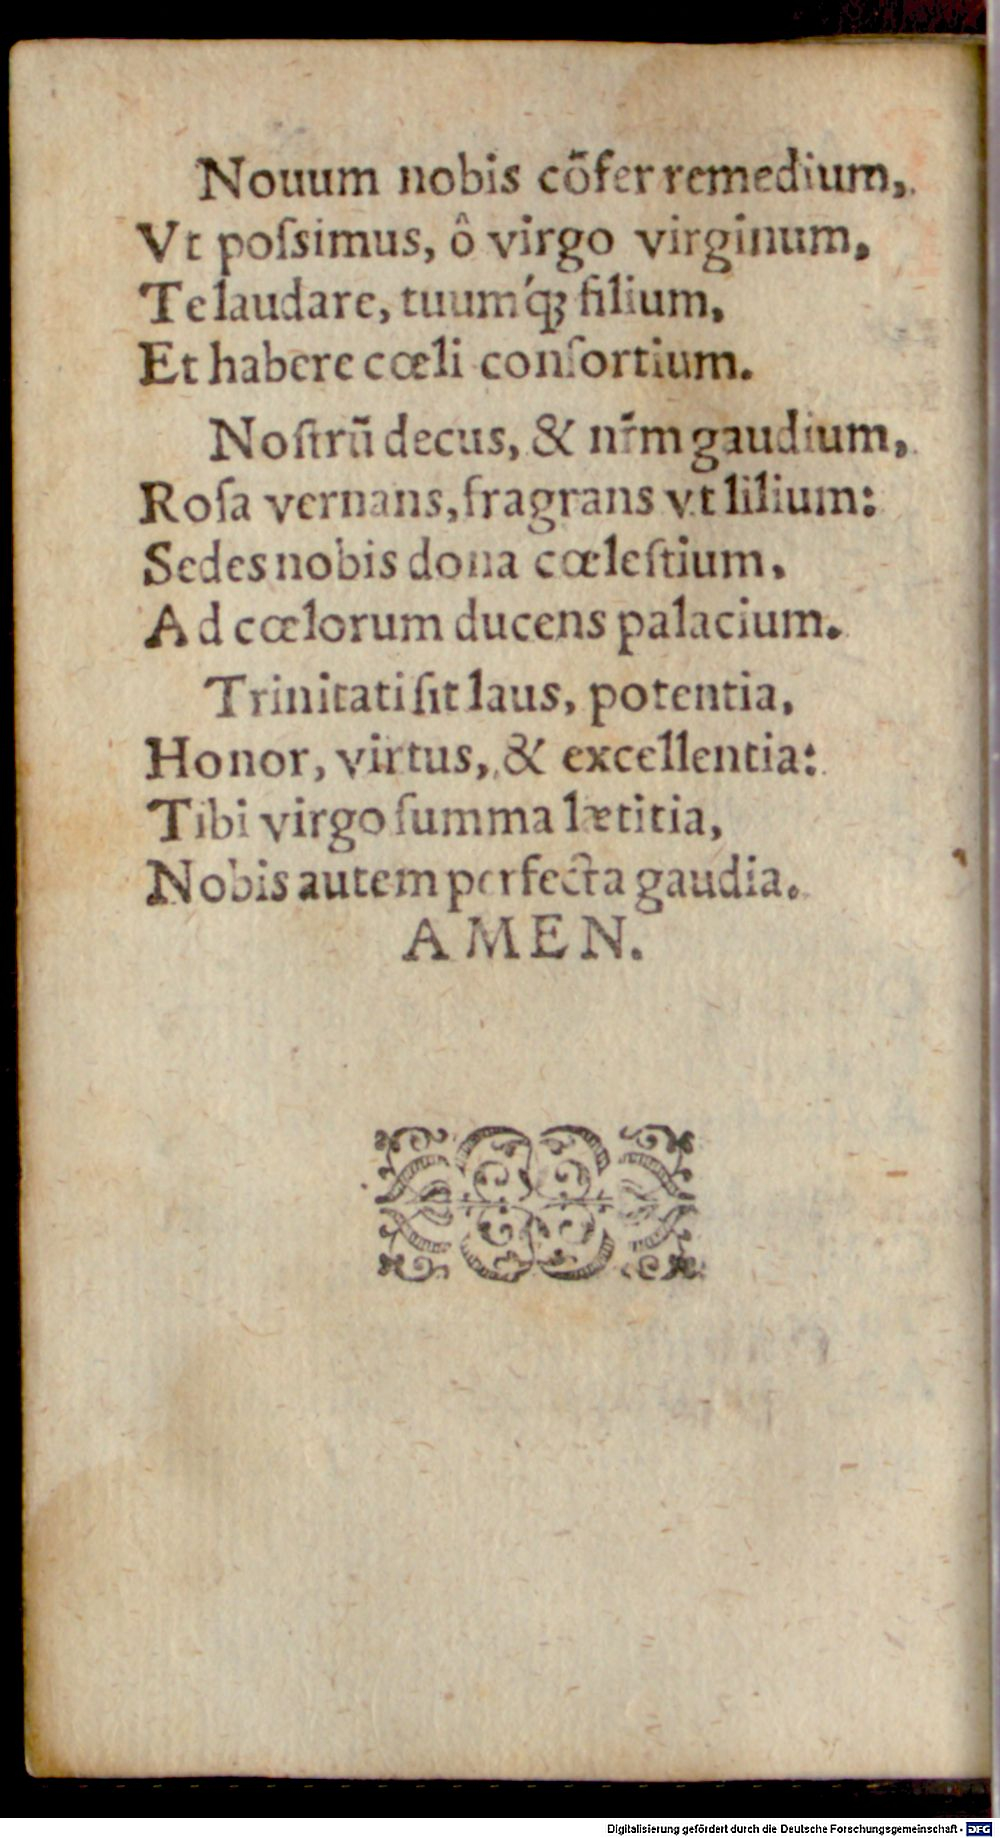 Nouum nobis cõfer remedium,
Vt poſsimus, ô virgo virginum,
Te laudare, tuumq́; filium,
Et habere cœli conſortium.
Noſtrũ decus, & nr̃m gaudium,
Roſa vernans, fragrans vt lilium:
Sedes nobis dona cœleſtium,
Ad cœlorum ducens palacium.
Trinitati ſit laus, potentia,
Honor, virtus, & excellentia:
Tibi virgo ſumma lætitia,
Nobis autem perfecta gaudia.
AMEN.
Digitalisierung gefördert durch die Deutsche Forschungsgemeinschaft - DFG